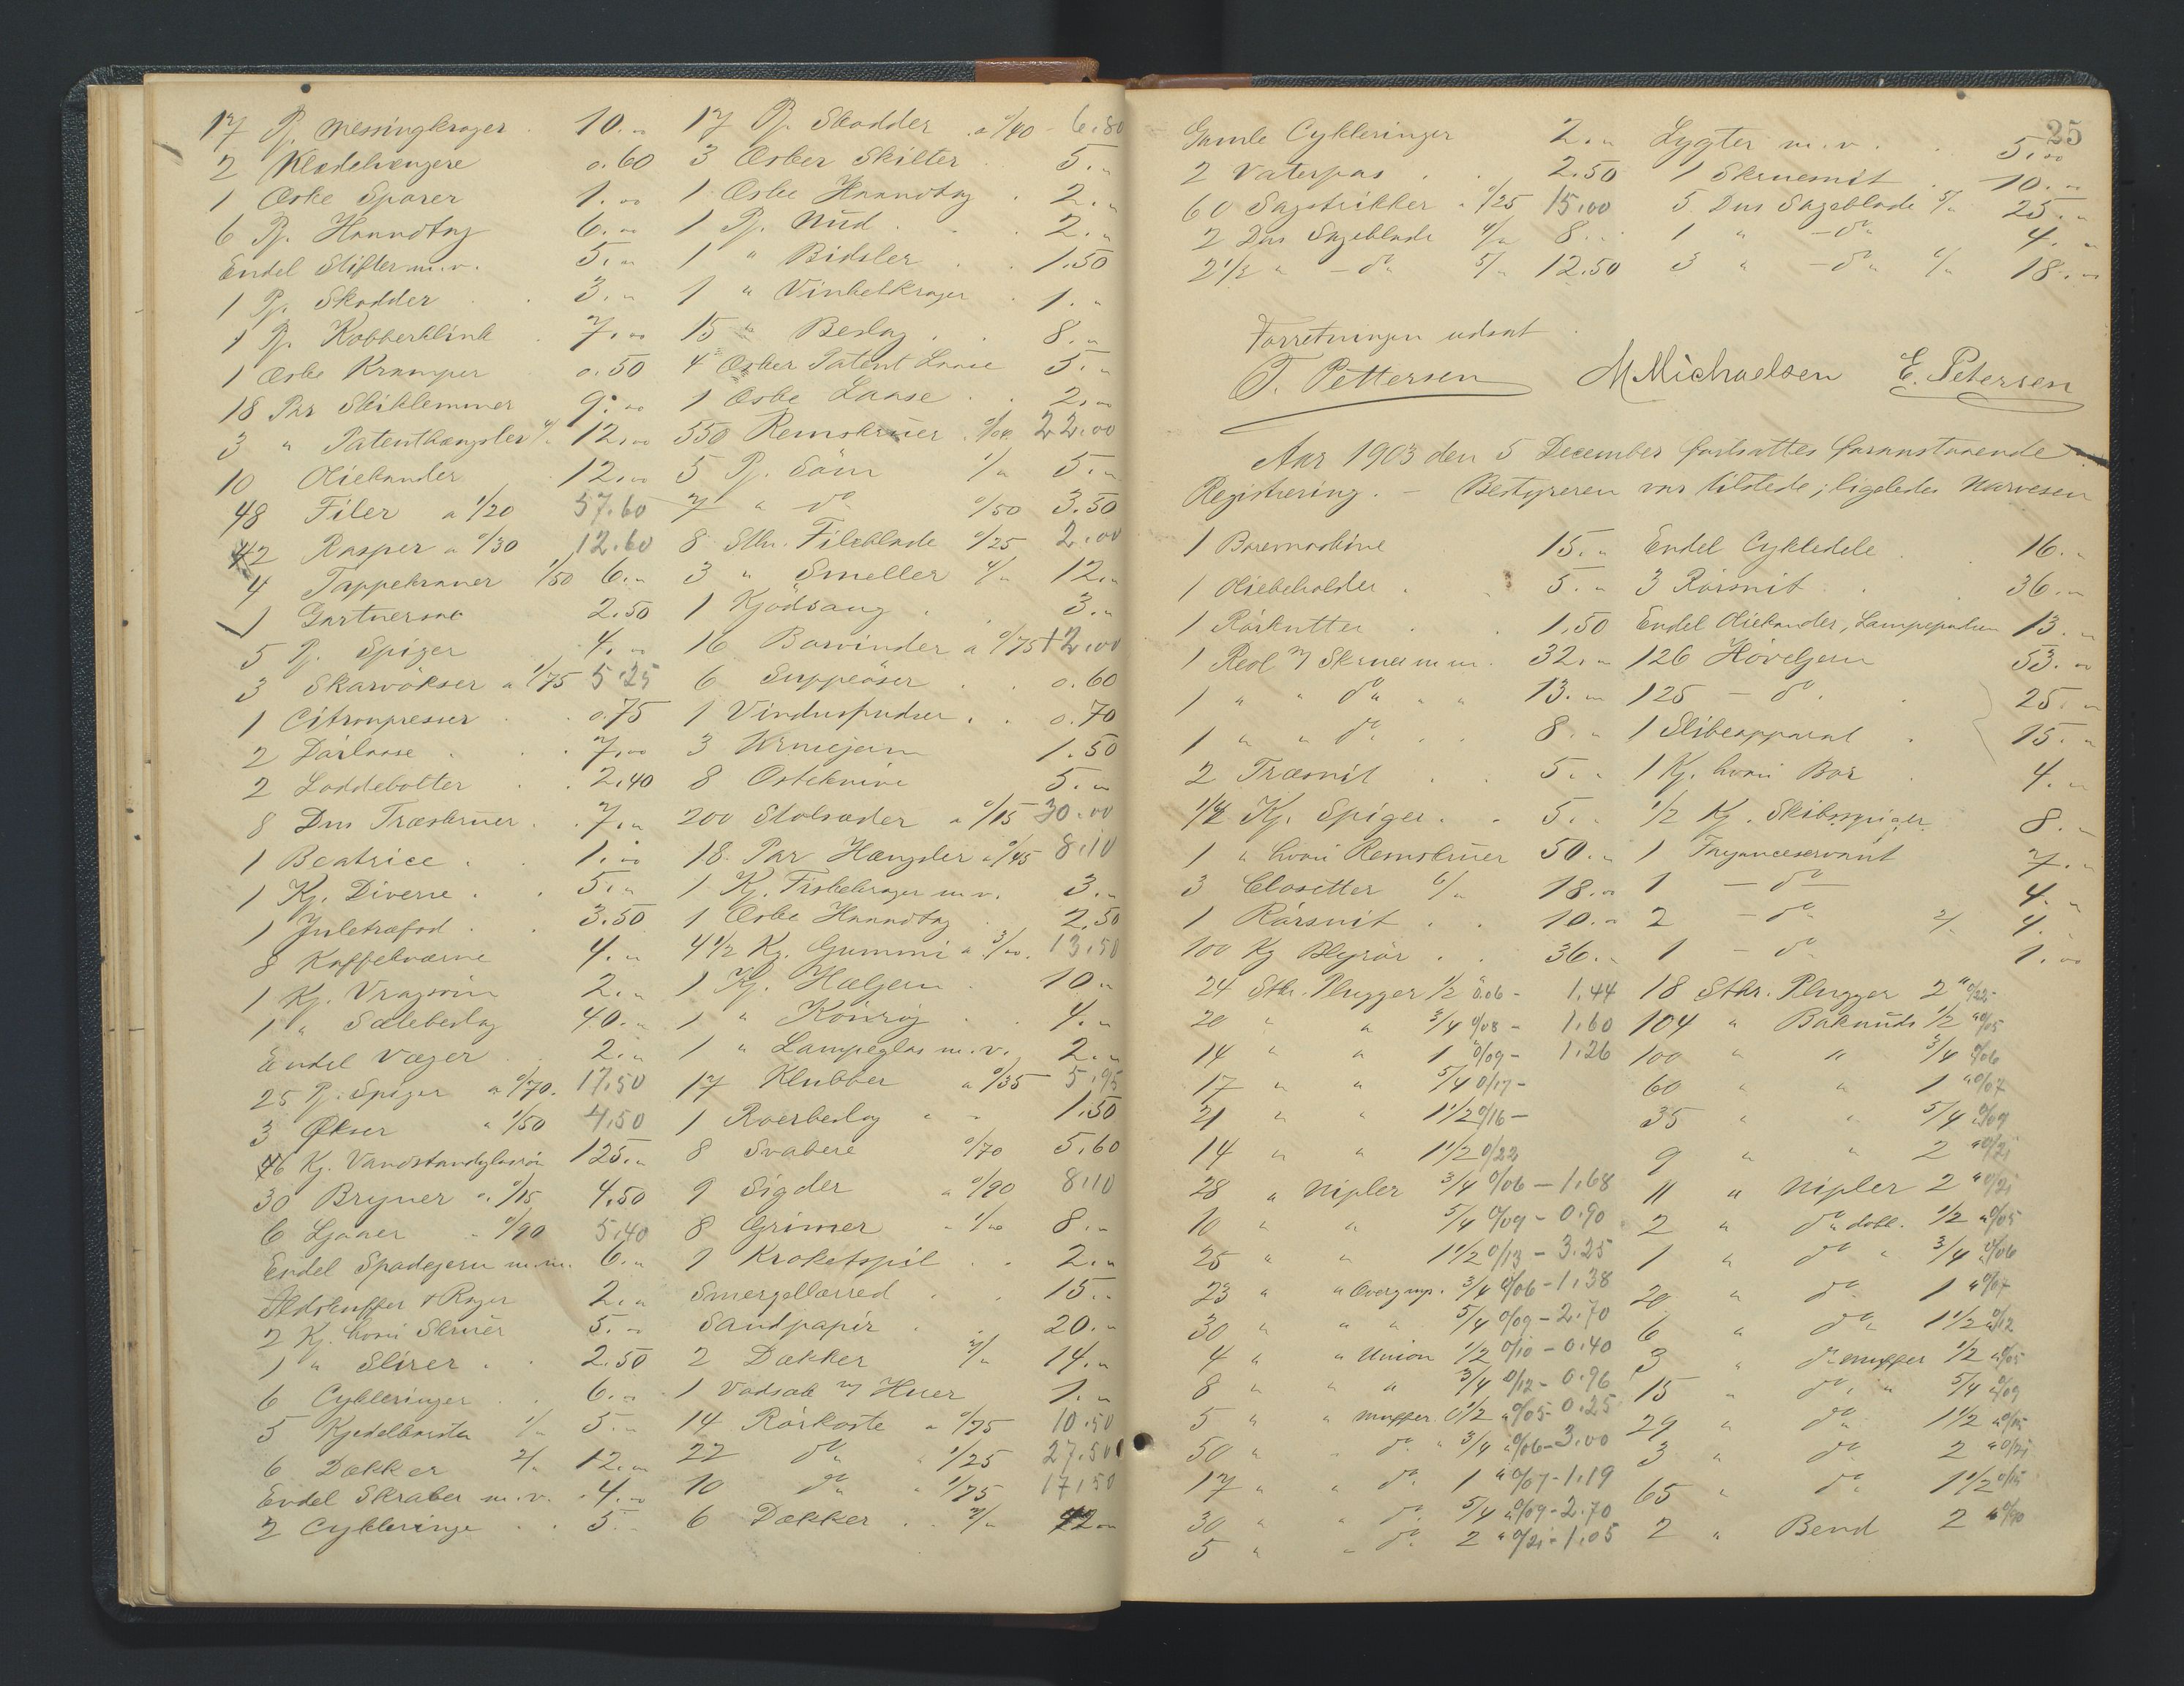 17 Pj. Messingkroger 10.„
2 Klædehængere 0.60
1 Æske Sparer 1.00
6 Pj. Haandtag 6.00
Endel Stifter m.v. 5.„
1 Pj. Skodder 3.„
1 Pj. Kobberklink 7.00
1 Æske Kramper 0.50
18 Par Skiklemmer 9.00
3 „ Patenthængsler 4/„ 12.00
10 Oliekander 12.00
48 Filer a 1/20 57.60
42 Rasper a 0/30 12.60
4 Tappekraner 1/50 6.„
1 Gartnersax 2.50
5 Pj. Spiger 4.00
3 Skarvökser a 1/75 5.25
1 Citronpresser 0.75
2 Dörlaase 7.00
2 Loddebolter 2.40
8 Dus Træskruer 7.„
1 Beatrice 1.00
1 Kj. Diverse 5.„
1 Juletræfod 3.50
8 Kaffekværne 4.„
1 Kj. 2.„
1 „ Sælebeslag 40.„
Endel Væger 2.„
25 Pj. Spiger a 0/70. 17.50
3 Økser „ 1/50 4.50
46 Kj. Vandstandsglasrör 125.„
30 Bryner a. 0/15 4.50
6 Ljaaer „ 0/90 5.40
Endel Spadejern m.m. 6.„
Ildskuffer & Rager 2.„
2 Kj. hvori Skruer 5.„
1 „ Slirer 2.50
6 Cykleringer 6.„
5 Kjedelbörster 1/„ 5.„
6 Dækker 2/„ 12.„
Endel Skraber m.v. 4.„
2 Cykleringe 5.
17 Pj. Skodder a 0/40 - 6.80
3 Æsker Skilter 5.„
1 Æske Haandtag 2.„
1 Pj. Nud 2.„
1 „ Bidsler 1.50
1 „ Vinkelkroger 1.„
15 „ Beslag 8.„
4 Æsker Patent Laase 5.„
1 Æske Laase 2.00
550 Remskruer 0/04 22.00
5 Pj. Söm 1/„ 5.„
7 „ do 0/50 3.50
8 Stk. Fileblade 0/25 2.00
3 „ Smeller 4/„ 12.„
1 Kjödsaug 3.„
16 Borvinder a 0/75 12.00
6 Suppeöser 0.60
1 Vinduspudser 0.70
3 1.50
8 Osteknive 5.„
200 Stolsæder a 0/15 30.00
18 Par Hængsler a 0/45 8.10
1 Kj. Fiskekroger m.v. 3.„
1 Æske Haandtag 2.50
4 1/2 Kg. Gummi a 3/00. 13.50
1 Kj. Hæljern 10.„
1 „ Könrög 4.„
1 „ Lampeglas m.v. 2.„
17 Klubber a 0/35 5.95
1 Roerbeslag 1.50
8 Svabere 0/70 5.60
9 Sigder a 0/90 8.10
8 Grimer „ 1/00 8.„
1 Kroketspil 2.„
Smergellærred 15.„
Sandpapir 20.„
2 Dækker 7/„ 14.„
1 Vadsæk m/ Huer 1.„
14 Rörkoste a 0/75 10.50
22 do „ 1/25 27.50
10 do „ 1/75 17.50
6 Dækker 7/„ 42.„
25
Gamle Cykleringer 2.„
2 Vaterpas 2.50
60 Sagstrikker a 0/25 15.00
2 Dus Sageblade 4/„ 8.„
2 1/2 „ - do „ 5/„ 12.50
Lygter m.v. 5.00
1 Skruesnit 10.„
5 Dus Sageblade 5/„ 25.„
1 „ - do „ 4.„
3 „ - do „ 6/„ 18.„
Forretningen udsat
T. Pettersen M Michaelsen E. Petersen
Aar 1903 den 5 December fortsattes foranstaaende
Registrering. - Bestyreren var tilstede; ligeledes Narvesen
1 Boremaskine 15.„
1 Oliebeholder 5.„
1 Rörkutter 1.50
1 Reol m/ Skruer m.m. 32.„
1 „ „ do „ „ 13.„
1 „ „ do 8.„
2 Træsnit 5.„
1/4 Kj. Spiger 5.„
1 „ hvori Remskruer 50.„
3 Closetter 6/„ 18.00
1 Rörsnit 10.„
100 Kg Blyrör 36.„
24 Stk. Plugger 1/2 0.06 - 1.44
20 „ „ 3/4 0/08 - 1.60
14 „ „ 1 0/09 - 1.26
17 „ „ 5/4 0/17 -
21 „ „ 1 1/2 0/16 -
14 „ „ 1 1/2 0/22
28 „ Nipler 3/4 0/06 - 1.68
10 „ „ 5/4 0/09 - 0.90
25 „ „ 1 1/2 0/13 - 3.25
23 „ „ Overg.np. 3/4 0/06 - 1.38
30 „ „ „ 5/4 0/09 - 2.70
4 „ „ Union 1/2 0/10 - 0.40
8 „ „ „ 3/4 0/12 - 0.96
5 „ „ Muffer 1/2 „ 0/05 - 0.25
50 „ „ do „ 3/4 „ 0/06 - 3.00
17 „ „ do 1 „ 0/07 - 1.19
30 „ „ do 5/4 „ 0/09 - 2.70
5 „ „ do 2 „ 0/21 - 1.05
Endel Cykledele 16.„
3 Rörsnit 36.„
Endel Oliekander, 13.„
126 Höveljern 53.„
125 - do 25.„
1 Slibeapparat 15.„
1 Kj. hvori Bor 4.„
1/2 Kj. Skibsspiger 8.„
1 Fayanceservant 7.„
1 - do - 4.„
2 - do „ 2/ 4.„
1 - do „ 1.00
18 Stk. Plugger 2 „ 0/22
104 „ Baknuds 1/2 „ 0/05
100 „ „ 3/4 0/06
60 „ „ 1 „ 0/07
35 „ „ 5/4 0/09
9 „ „ 2 „ 0/21
11 „ Nipler 2 „ 0/21
2 „ do dobb. 1/2 „ 0/05
1 „ do „ 3/4 0/06
20 „ do 1 „ 0/07
6 „ do 1 1/2 0/12
3 „ do muffer 1/2 „ 0/05
15 „ do „ 5/4 „ 0/09
29 „ do 1 1/2 „ 0/15
3 „ do 2 „ 0/21
65 „ do 1 1/2 0/15
2 „ Bend 2 „ 0/90